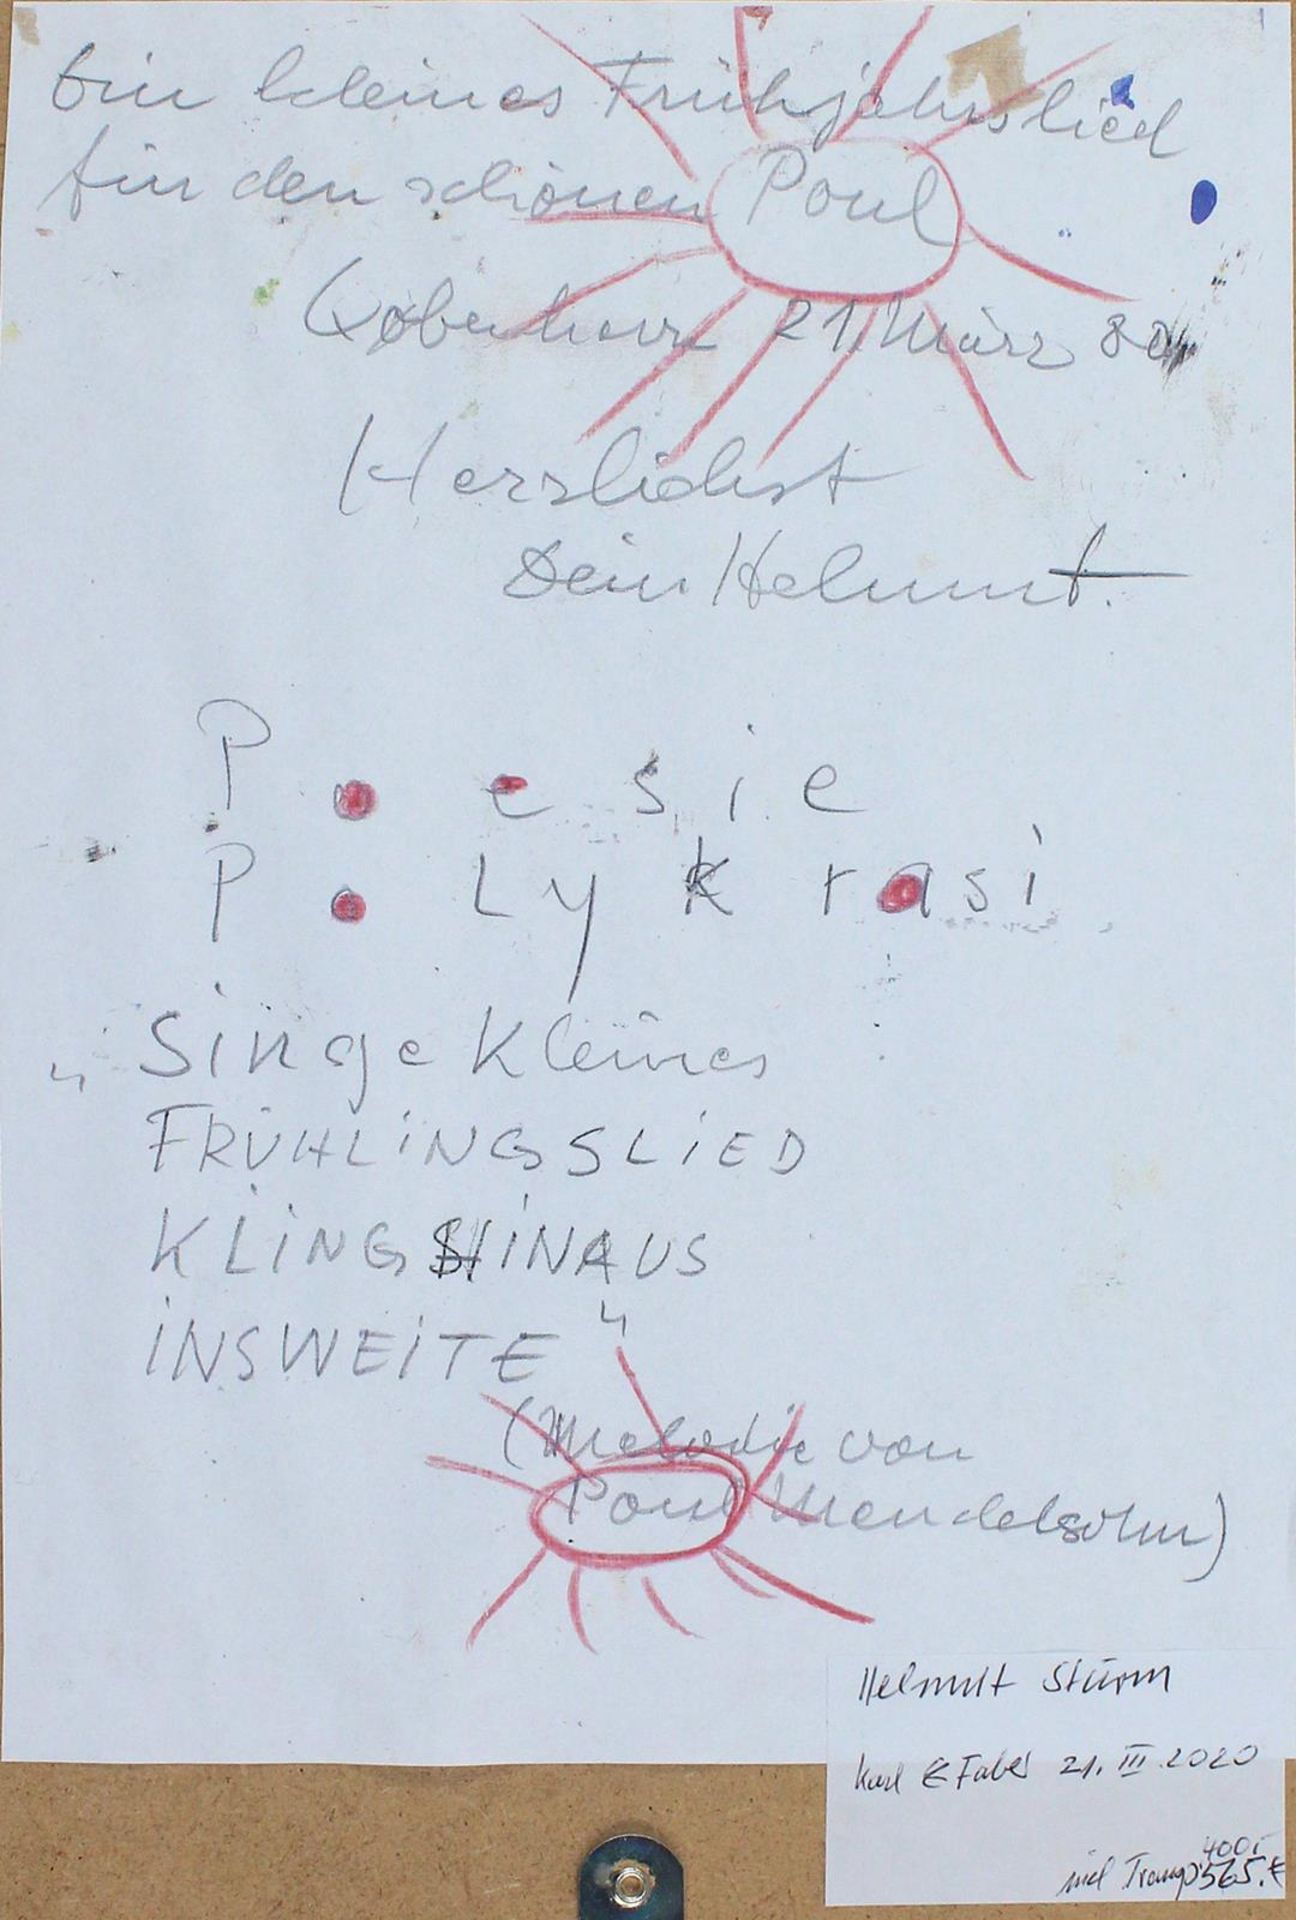 Ein kleines Frühjahrslied
für den schönen Poul
21. März 80
Herzlichst
Dein Helmut.
Poesie
Polykrasi
"Singe Kleines
FRÜHLiNGSLiED
KLiNG HiNAUS
iNSWEiTE"
(Melodie von
Poul Mendelsohn)
Helmut Sturm
Karl & Faber 21. III. 2020
400,-
incl 565.€